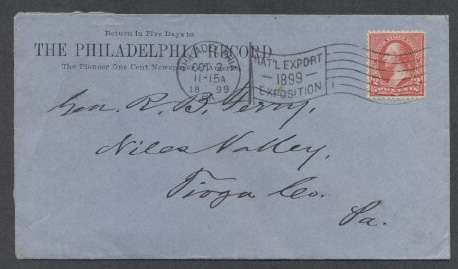 Return in Five Days to
THE PHILADELPHIA RECORD
The Pioneer One Cent Newspaper of America
PHILADELPHIA
OCT 2
11-15A
18 99
PA
NAT'L EXPORT
1899
EXPOSITION
2 CENTS 2
Gen. R. B. Perry,
Niles Valley,
Tioga Co.
Pa.